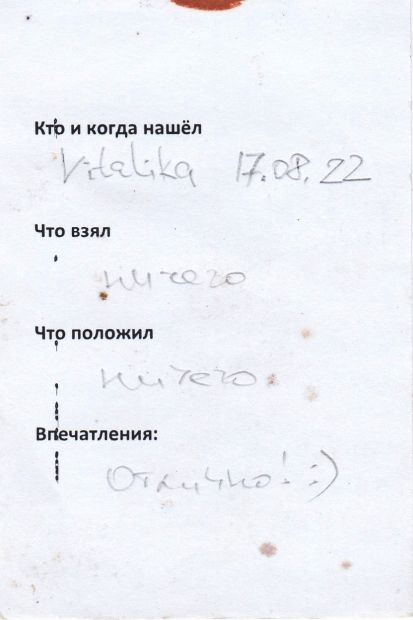 Кто и когда нашёл
Vitalika 17.08.22
Что взял
ничего
Что положил
ничего
Впечатления:
Отлично! :)